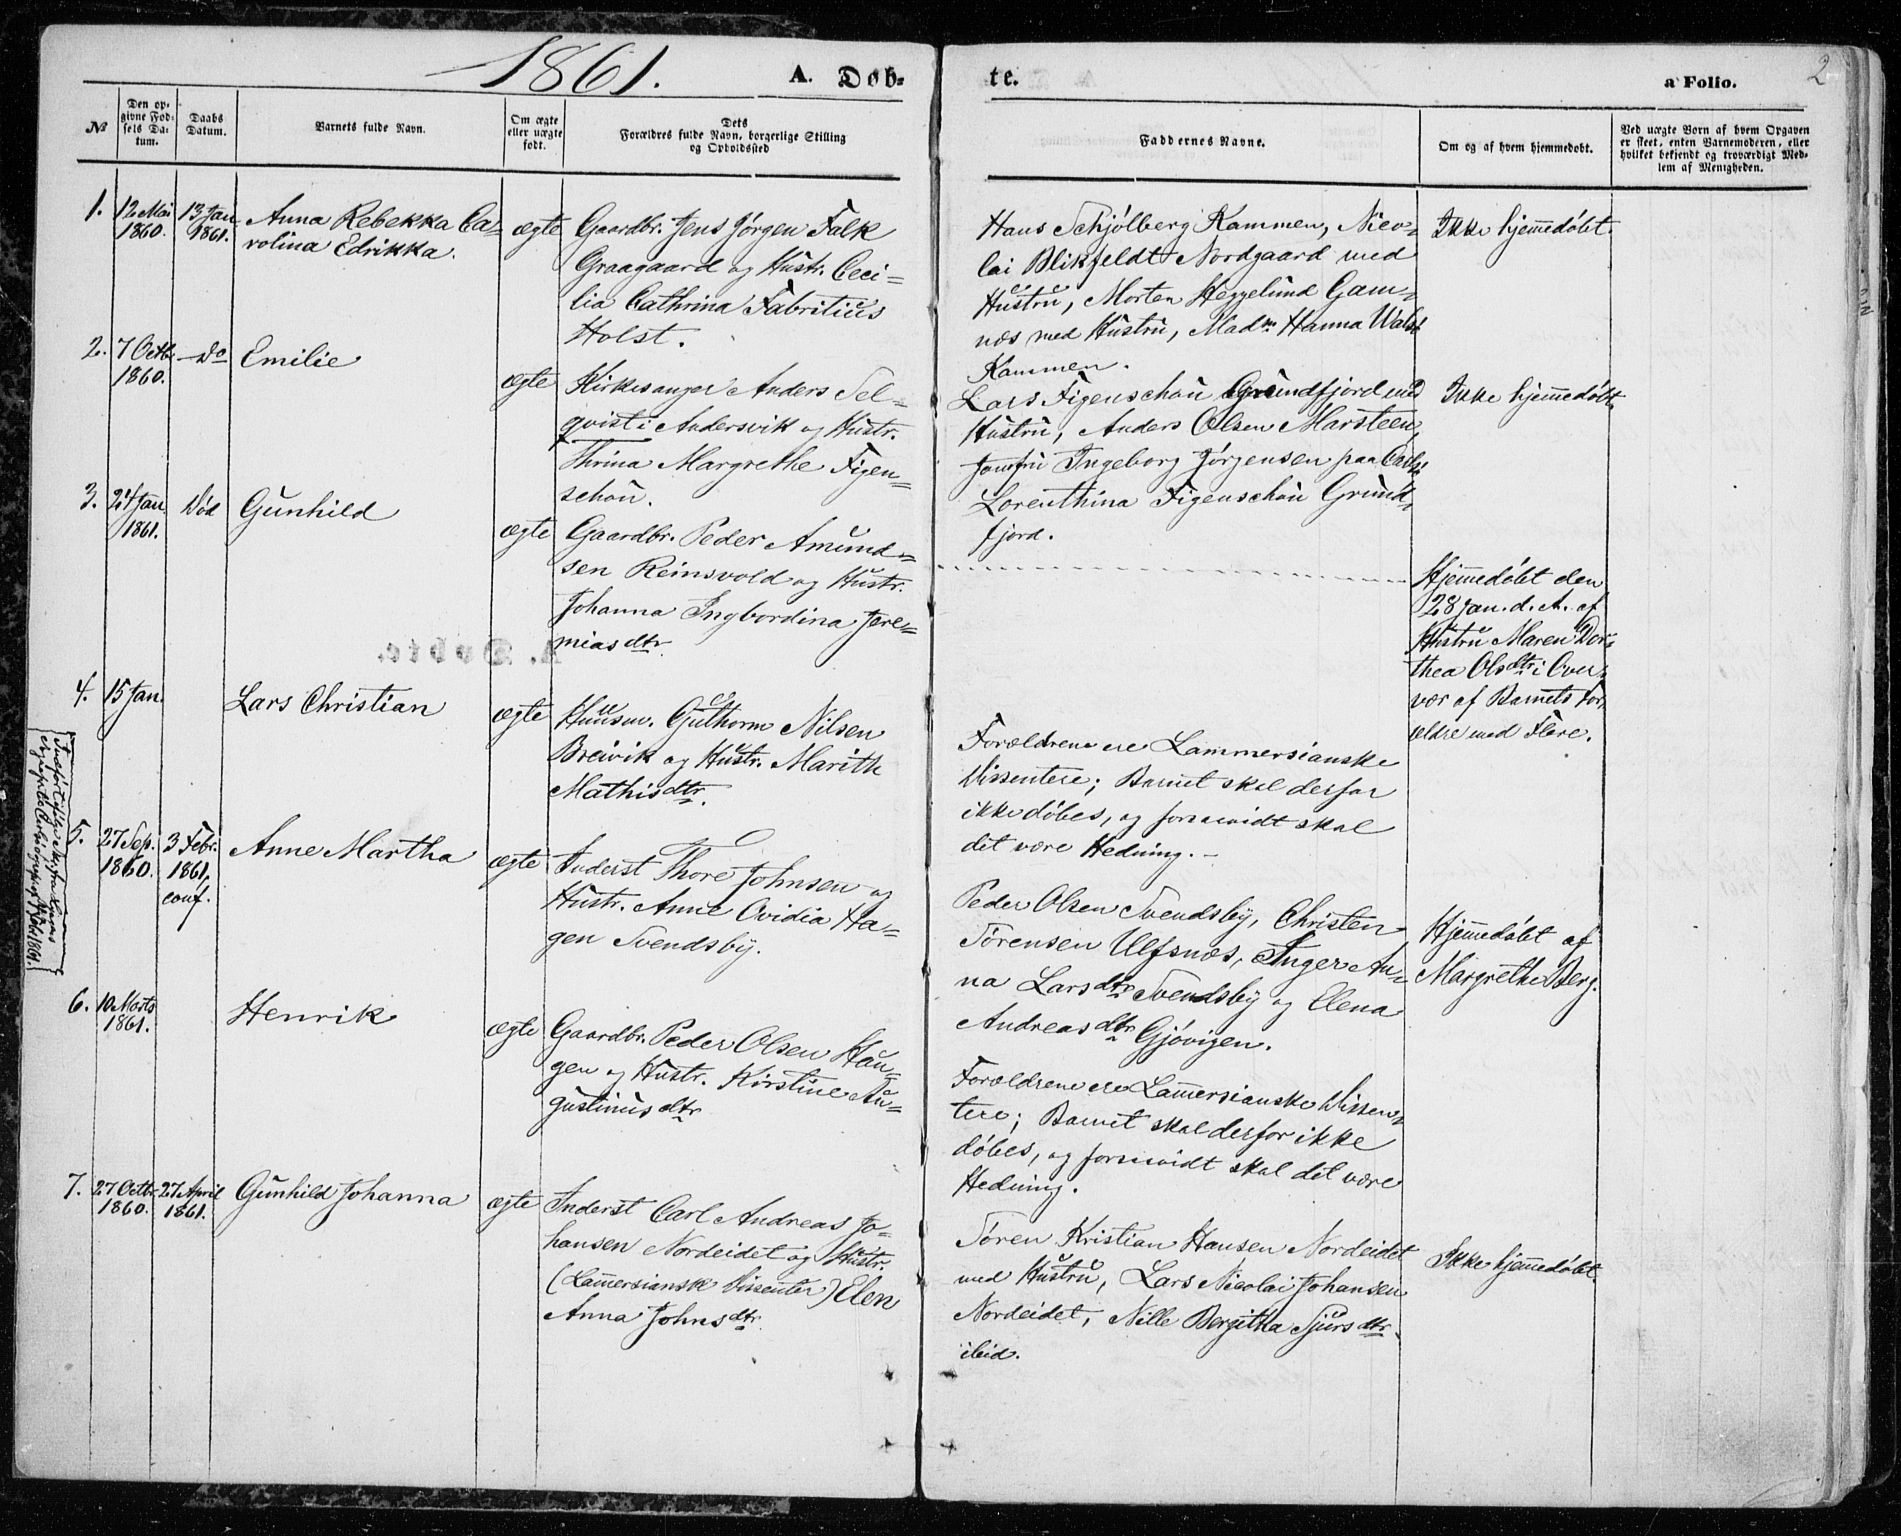 1861.
A. Døb-
te.
a Folio.
2
№
Den op-
givne Fød-
sels Da-
tum.
Daabs
Datum.
Barnets fulde Navn.
Om ægte
eller uægte
født.
Dets
Forældres fulde Navn, borgerlige Stilling
og Opholdssted
Faddernes Navne.
Om og af hvem hjemmedøbt.
Ved uægte Børn af hvem Opgaven
er skeet, enten Barnemoderen, eller
hvilket bekjendt og troværdigt Med-
lem af Menigheden.
1.
12 Mai
1860.
13 Jan
1861.
Anna Rebekka Ca-
rolina Edrikka.
ægte
Gaardbr. Jens Jørgen Falk
Graagaard og Hustr. Ceci-
lia Cathrina Fabritius
Holst.
Hans Schjølberg Kammen, Nico-
lai Blikfeldt Nordgaard med
Hustru, Morten Heggelund Gam-
næs med Hustru, Madm Hanna
Kammen.
Ikke hjemmedøbt.
2.
7 Octb.
1860.
Do
Emilie
ægte
Kirkesanger Anders Sel-
qvist i Andersvik og Hustr.
Thrina Margrethe Figen-
schou.
Lars Figenschou Grundfjord med
Hustru, Anders Olsen Marsteen,
Jomfru Ingeborg Jørgensen paa
Lorenthina Figenschou Grund-
fjord.
Ikke hjemmedøbt.
3.
24 Jan.
1861.
Død
Gunhild
ægte
Gaardbr. Peder Amund-
sen Reinsvold og Hustr.
Johanna Ingbordina Jere-
miasdtr.
Hjemmedøbt den
28 Jan. d. A. af
Hustru Maren Dor-
thea Olsdtr. i Over-
vær af Barnets For-
ældre med Flere.
4.
15 Jan.
Lars Christian
ægte
Huusm. Guthorm Nilsen
Breivik og Hustr. Marith
Mathisdtr.
Forældrene ere Lammersianske
Dissentere; Barnet skal derfor
ikke døbes, og forsaavidt skal
det være Hedning.-
5.
27 Sep.
1860.
3 Febr.
1861,
conf.
Anne Martha
ægte
Inderst Thore Johnsen og
Hustr. Anne Ovidia Ha-
gen Svendsby.
Peder Olsen Svendsby, Christen
Sørensen Ulfsnæs, Inger An-
na Larsdtr Svendsby og Elena
Andreasdtr Gjøvigen.
Hjemmedøbt af
Margrethe Berg.
6.
10 Marts
1861.
Henrik
ægte
Gaardbr. Peder Olsen Hau-
gen og Hustr. Kirstine Au-
gustinusdtr
Forældrene ere Lammersianske Dissen-
tere; Barnet skal derfor ikke
døbes, og forsaavidt skal det være
Hedning.
7.
27 Octb.
1860.
27 April
1861.
Gunhild Johanna
ægte
Inderst Carl Andreas Jo-
hansen Nordeidet og Hustr.
(Lammersiansk Dissenter) Elen
Anna Johnsdtr.
Søren Kristian Hansen Nordeidet
med Hustru, Lars Nicolai Johansen
Nordeidet, Nille Bergitha Sjursdtr.
ibid.
Ikke hjemmedøbt